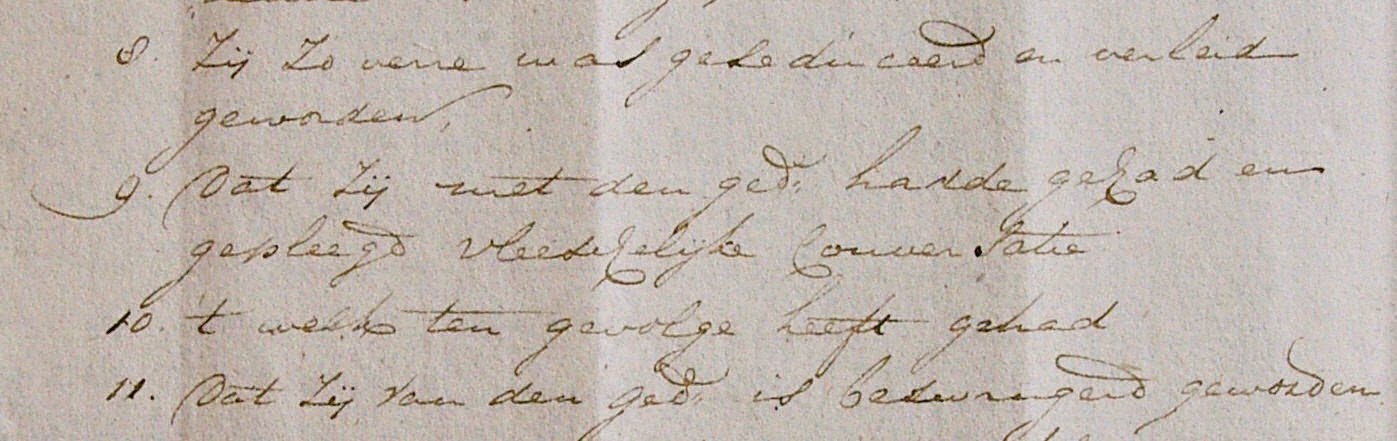 8. Zij zo verre was geseduceerd en verleid
geworden,
9. Dat zij met den ged: hadde gehad en
gepleegd vleeschelijke Conversatie
10. 't welk ten gevolge heeft gehad
11. Dat zij van den ged: is beswangerd geworden